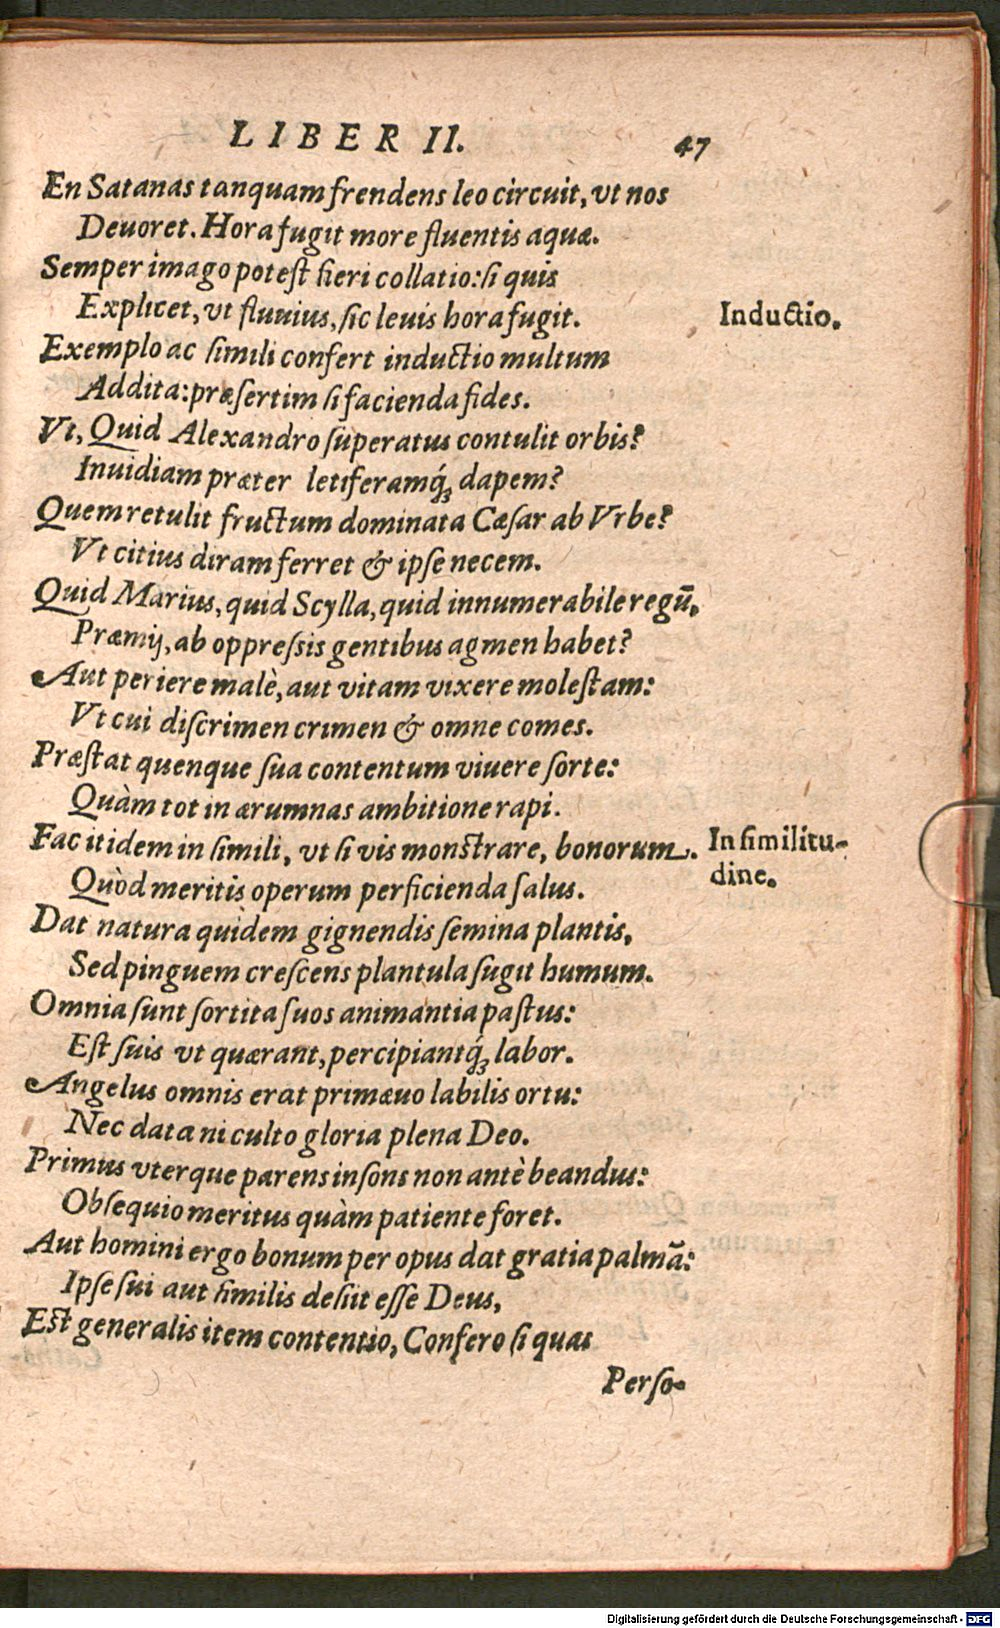 LIBER II. 47
En Satanas tanquam frendens leo circuit, vt nos
Deuoret. Hora fugit more fluentis aquæ.
Semper imago potest fieri collatio: si quis
Explicet, vt fluuius, sic leuis hora fugit.
Inductio.
Exemplo ac simili confert inductio multum
Addita: præsertim si facienda fides.
Vt, Quid Alexandro superatus contulit orbis?
Inuidiam præter letiferamq́; dapem?
Quem retulit fructum dominata Cæsar ab Vrbe?
Vt citius diram ferret & ipse necem.
Quid Marius, quid Scylla, quid innumerabile regū,
Præmij, ab oppressis gentibus agmen habet?
Aut periere malè, aut vitam vixere molestam:
Vt cui discrimen crimen & omne comes.
Præstat quenque sua contentum viuere sorte:
Quàm tot in ærumnas ambitione rapi.
Fac itidem in simili, vt si vis monstrare, bonorum.
In similitu-
dine.
Quòd meritis operum perficienda salus.
Dat natura quidem gignendis semina plantis,
Sed pinguem crescens plantula sugit humum.
Omnia sunt sortita suos animantia pastus:
Est suis vt quærant, percipiantq́; labor.
Angelus omnis erat primæuo labilis ortu:
Nec data ni culto gloria plena Deo.
Primus vterque parens insons non antè beandus:
Obsequio meritus quàm patiente foret.
Aut homini ergo bonum per opus dat gratia palmā:
Ipse sui aut similis desiit esse Deus,
Est generalis item contentio, Confero si quas
Perso-
Digitalisierung gefördert durch die Deutsche Forschungsgemeinschaft - DFG